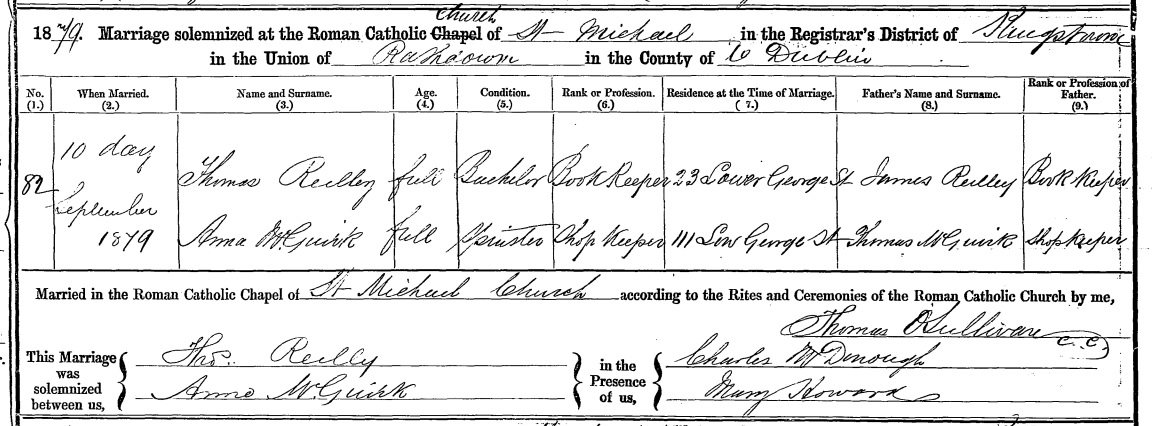 Church
1879. Marriage solemnized at the Roman Catholic Chapel of St Michael in the Registrar's District of Kingstown
in the Union of Rathdown in the County of Co Dublin
No. (1.) When Married. (2.) Name and Surname. (3.) Age. (4.) Condition. (5.) Rank or Profession. (6.) Residence at the Time of Marriage. (7.) Father's Name and Surname. (8.) Rank or Profession of Father. (9.)
10 day
82 Thomas Reilley full Bachelor Book Keeper 23 Lower George St James Reilley Book Keeper
September
1879 Anna McGuirk full Spinster Shop Keeper 111 Low George St Thomas McGuirk Shop Keeper
Married in the Roman Catholic Chapel of St Michael Church according to the Rites and Ceremonies of the Roman Catholic Church by me,
Thomas O'Sullivan C.C.
This Marriage was solemnized between us, Thos. Reilly in the Presence of us, Charles McDonough
Anna McGuirk Mary Howard